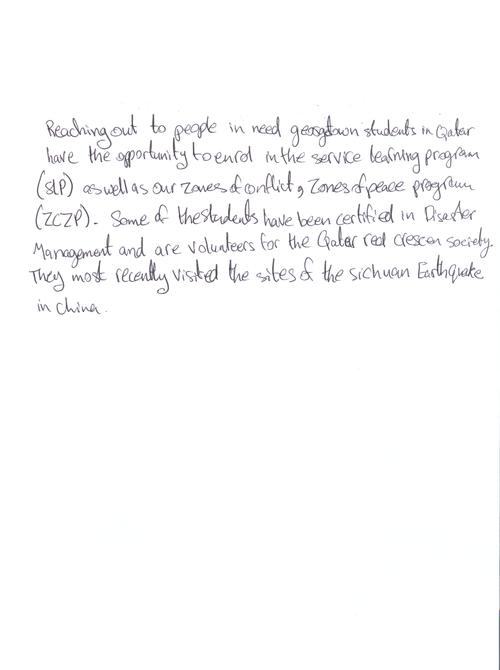 Reaching out to people in need georgtown students in Qatar
have the opportunity to enrol in the service learning program
(SLP) as well as our zones of conflict, Zones of peace program
(ZCZP). Some of the students have been certified in Disaster
Management and are volunteers for the Qatar red crescen society.
They most recently visited the sites of the sichuan Earthquake
in china.